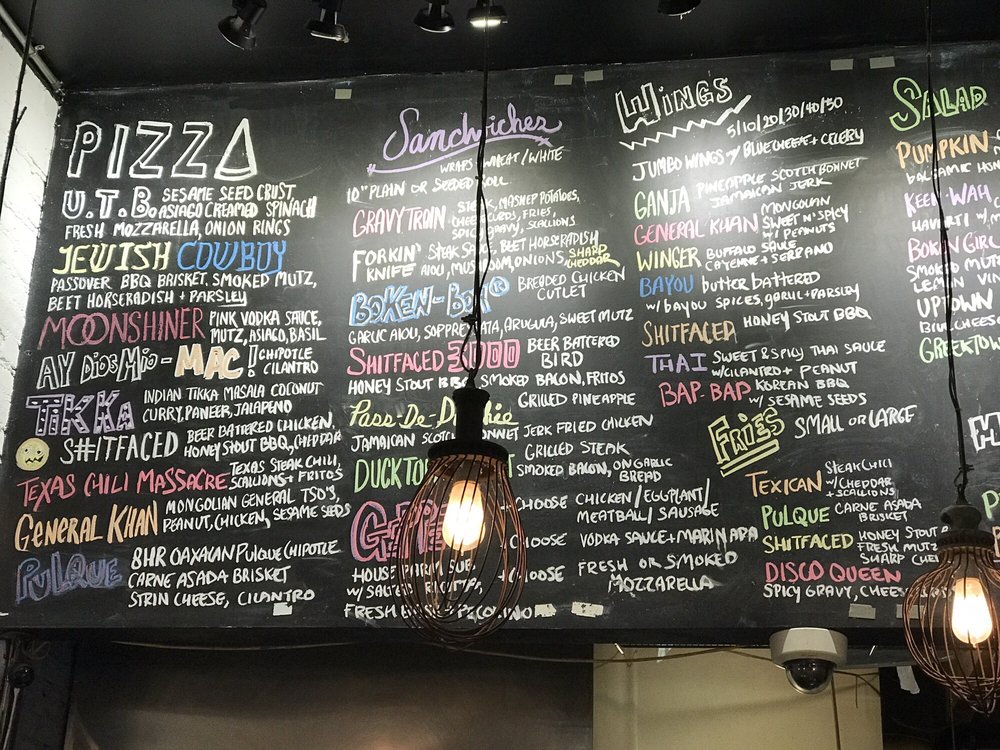 PIZZA
U.T.B. SESAME SEED CRUST,
ASIAGO CREAMED SPINACH
FRESH MOZZARELLA, ONION RINGS
JEWISH COWBOY
PASSOVER BBQ BRISKET, SMOKED MUTZ,
BEET HORSERADISH + PARSLEY
MOONSHINER PINK VODKA SAUCE,
MUTZ, ASIAGO, BASIL
AY Dios Mio - MAC! CHIPOTLE
CILANTRO
TIKKA INDIAN TIKKA MASALA COCONUT
CURRY, PANEER, JALAPENO
S#ITFACED BEER BATTERED CHICKEN,
HONEY STOUT BBQ, CHEDDAR
TEXAS CHILI MASSACRE TEXAS STEAK CHILI,
SCALLIONS + FRITOS
GENERAL KHAN MONGOLIAN GENERAL TSO'S,
PEANUT, CHICKEN, SESAME SEEDS
PULQUE 8HR OAXACAN PULQUE CHIPOTLE
CARNE ASADA BRISKET
STRIN CHEESE, CILANTRO
Sandwiches
WRAPS WHEAT/WHITE
10" PLAIN OR SEEDED ROLL
GRAVYTRAIN MASHED POTATOES,
FRIES,
SPICY GRAVY, SCALLIONS
FORKIN' KNIFE STEAK BEET HORSERADISH
AIOLI, MUSHROOM, ONIONS, SHARP CHEDDAR
BOKEN-BOY® BREADED CHICKEN
CUTLET
GARLIC AIOLI, ARUGULA, SWEET MUTZ
SHITFACED 3000 BEER BATTERED
BIRD
HONEY STOUT BBQ SMOKED BACON, FRITOS
GRILLED PINEAPPLE
JAMAICAN SCOTCH BONNET JERK FRIED CHICKEN
GRILLED STEAK
SMOKED BACON, ON GARLIC
BREAD
CHOOSE CHICKEN/EGGPLANT/
MEATBALL/SAUSAGE
CHOOSE VODKA SAUCE + MARINARA
CHOOSE FRESH OR SMOKED
MOZZARELLA
W/
FRESH PECORINO
WINGS
5/10/20/30/40/50
JUMBO WINGS W/ BLUE CHEESE + CELERY
GANJA PINEAPPLE SCOTCH BONNET
JAMAICAN JERK
GENERAL KHAN MONGOLIAN
SWEET N' SPICY
W/ PEANUTS
WINGER BUFFALO SAUCE
CAYENNE + SERRANO
BAYOU butter battered
W/ BAYOU SPICES, GARLIC + PARSLEY
SHITFACED HONEY STOUT BBQ
THAI SWEET & SPICY THAI SAUCE
W/ CILANTRO + PEANUT
BAP-BAP KOREAN BBQ
W/ SESAME SEEDS
FRIES SMALL OR LARGE
TEXICAN STEAK CHILI
W/ CHEDDAR
+ SCALLIONS
PULQUE CARNE ASADA
BRISKET
SHITFACED HONEY STOUT
FRESH MUTZ
SHARP
DISCO QUEEN
SPICY GRAVY,
SALAD
PUMPKIN
BALSAMIC
KEEN-WAH
HAVARTI
BOKEN GIRL
SMOKED MUTZ
LEMON
UPTOWN
BLUE CHEESE
GREEKTOWN